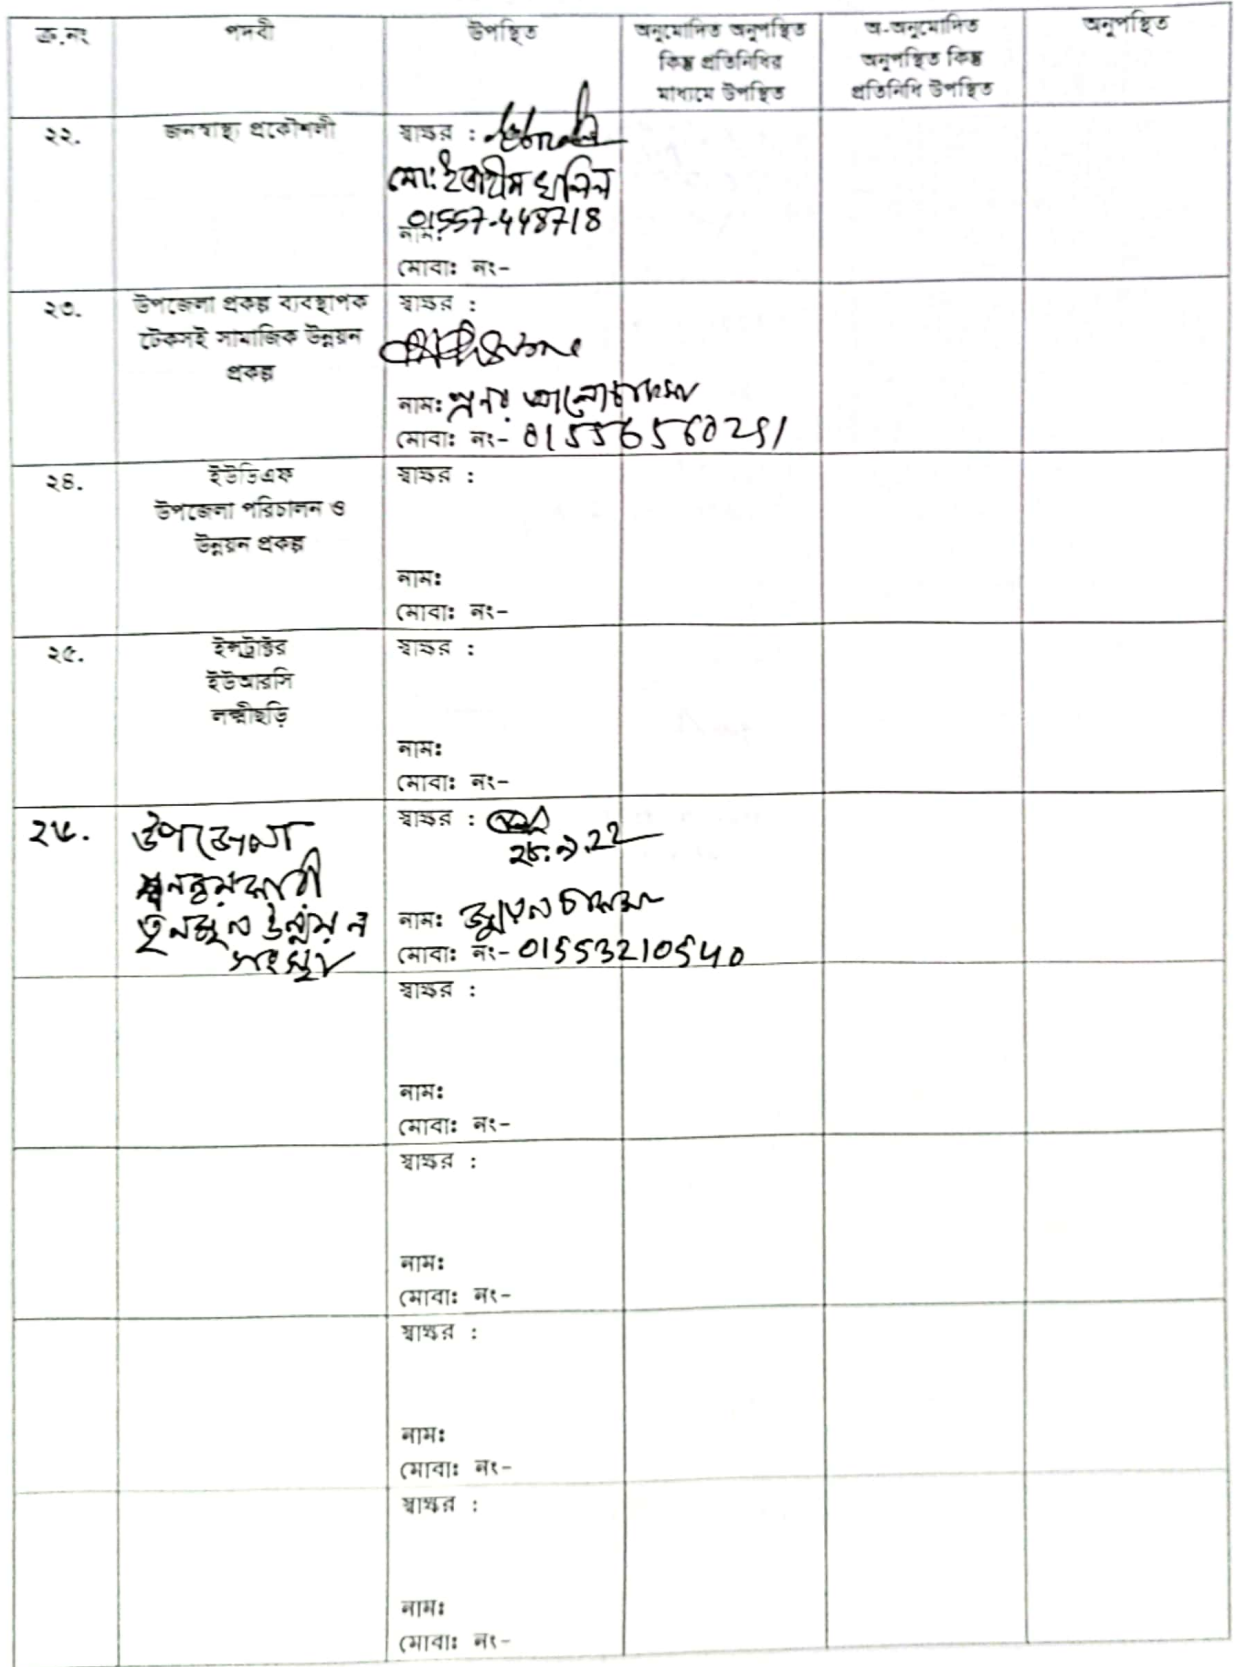 ক্র.নং পদবী উপস্থিত অনুমোদিত অনুপস্থিত কিন্তু প্রতিনিধির মাধ্যমে উপস্থিত অ-অনুমোদিত অনুপস্থিত কিন্তু প্রতিনিধি উপস্থিত অনুপস্থিত
২২. জনস্বাস্থ্য প্রকৌশলী স্বাক্ষর :
মো: ইব্রাহীম খলিল
01557-448718
নাম:
মোবাঃ নং-
২৩. উপজেলা প্রকল্প ব্যবস্থাপক স্বাক্ষর :
টেকসই সামাজিক উন্নয়ন
প্রকল্প
নামঃ
মোবাঃ নং- 01556560291
২৪. ইউডিএফ স্বাক্ষর :
উপজেলা পরিচালন ও
উন্নয়ন প্রকল্প
নামঃ
মোবাঃ নং-
২৫. ইন্সট্রাক্টর স্বাক্ষর :
ইউআরসি
লক্ষ্মীছড়ি
নামঃ
মোবাঃ নং-
২৬. উপজেলা স্বাক্ষর :
২৮.৯.22
সমন্বয়কারী
তৃনমূল উন্নয়ন নামঃ চাকমা
সংস্থা মোবাঃ নং- 01553210540
স্বাক্ষর :
নামঃ
মোবাঃ নং-
স্বাক্ষর :
নামঃ
মোবাঃ নং-
স্বাক্ষর :
নামঃ
মোবাঃ নং-
স্বাক্ষর :
নামঃ
মোবাঃ নং-